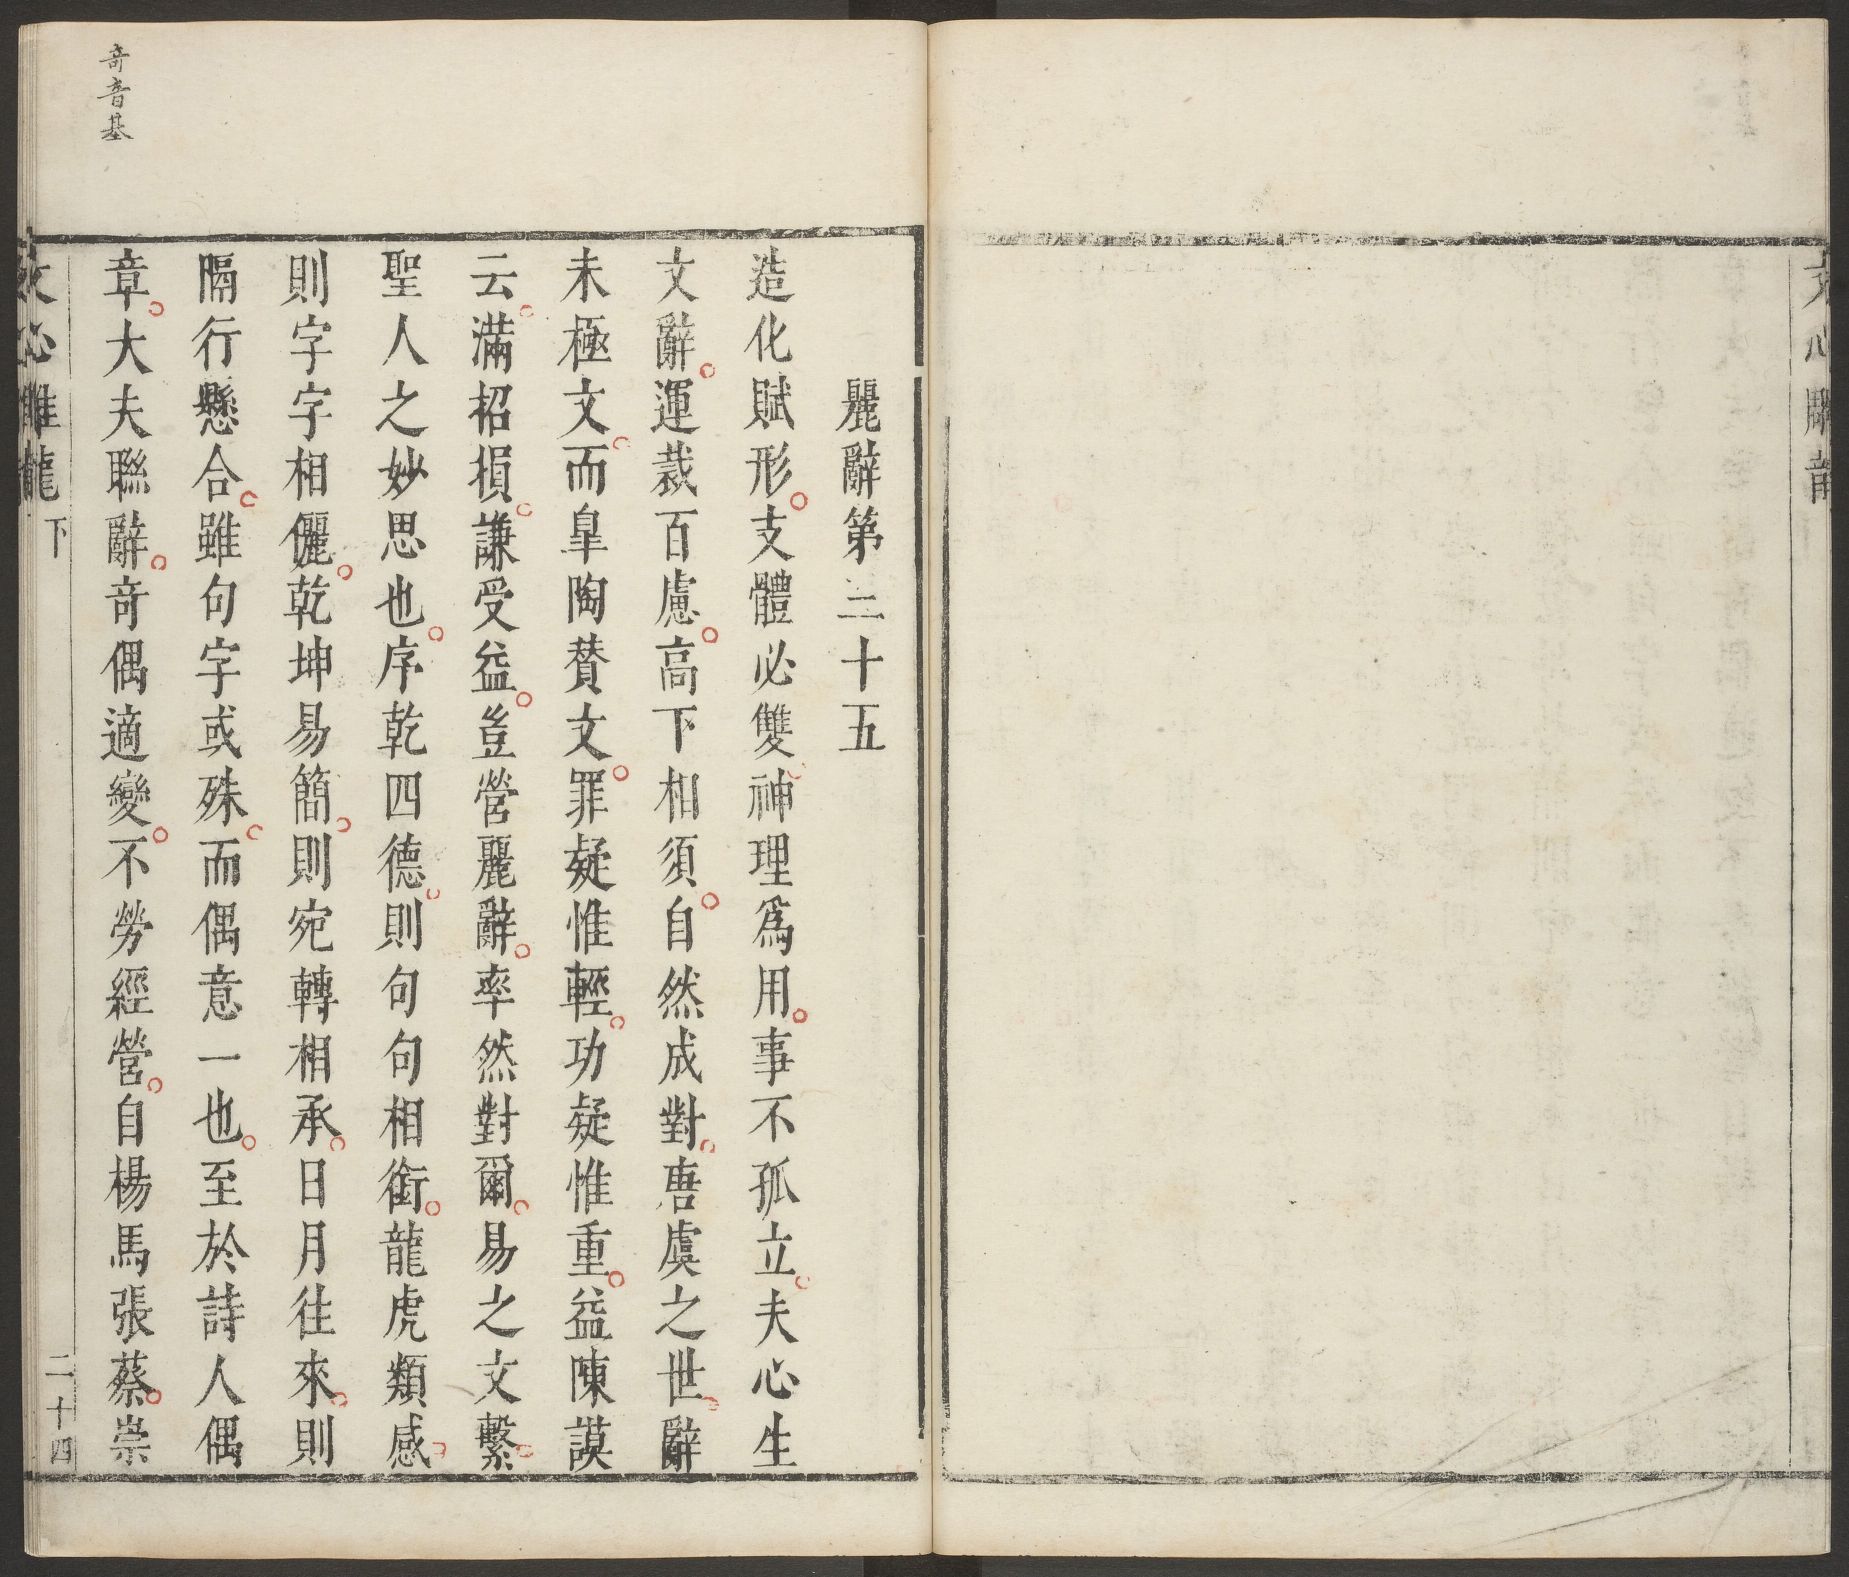 文心雕龍
麗辭第三十五
造化賦形支體必雙神理爲用事不孤立夫心生
文辭運裁百慮高下相須自然成對唐虞之世辭
未極文而臯陶贊文罪疑惟輕功疑惟重益陳謨
云滿招損謙受益豈營麗辭率然對爾易之文繫
聖人之妙思也序乾四德則句句相銜龍虎類感
則字字相儷乾坤易簡則宛轉相承日月往來則
隔行懸合雖句字或殊而偶意一也至於詩人偶
章大夫聯辭奇偶適變不勞經營自楊馬張蔡崇
奇音基
文心雕龍 下
二十四